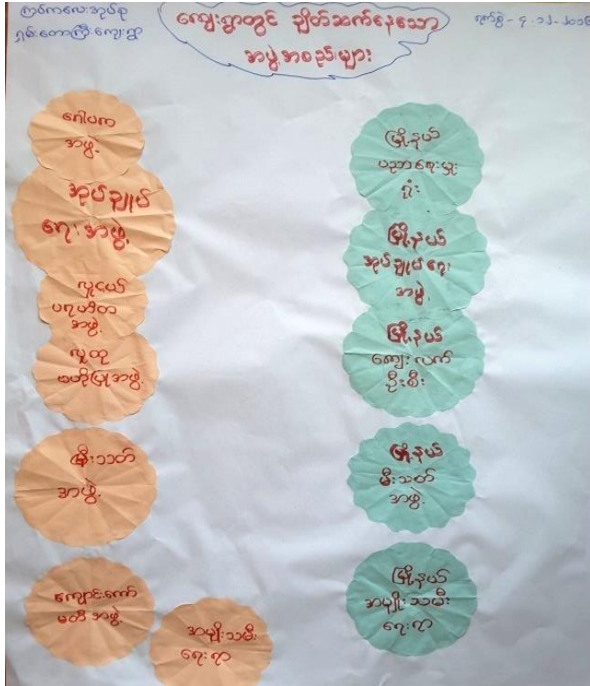 ကျေးရွာတွင် ချိတ်ဆက်နေသော
အဖွဲ့အစည်းများ
ဂေါပက
အဖွဲ့
အုပ်ချုပ်
ရေးအဖွဲ့
လူငယ်
ပရဟိတ
အဖွဲ့
လူထု
ဗဟိုပြုအဖွဲ့
မီးသတ်
အဖွဲ့
ကျောင်းကော်
မတီ အဖွဲ့
အမျိုးသမီး
ရေးရာ
မြို့နယ်
ပညာရေးမှူး
ရုံး
မြို့နယ်
အုပ်ချုပ်ရေး
အဖွဲ့
မြို့နယ်
ကျေးလက်
ဦးစီး
မြို့နယ်
မီးသတ်
အဖွဲ့
မြို့နယ်
အမျိုးသမီး
ရေးရာ